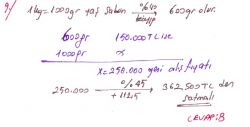 9) 1kg=1000gr yaş sabun %40 kaybedip 600gr olur.
600gr 150.000TL ise
1000gr x
x=250.000 yeni alış fiyatı
250.000 %45 +112,5 362.500TL den satmalı
CEVAP:B